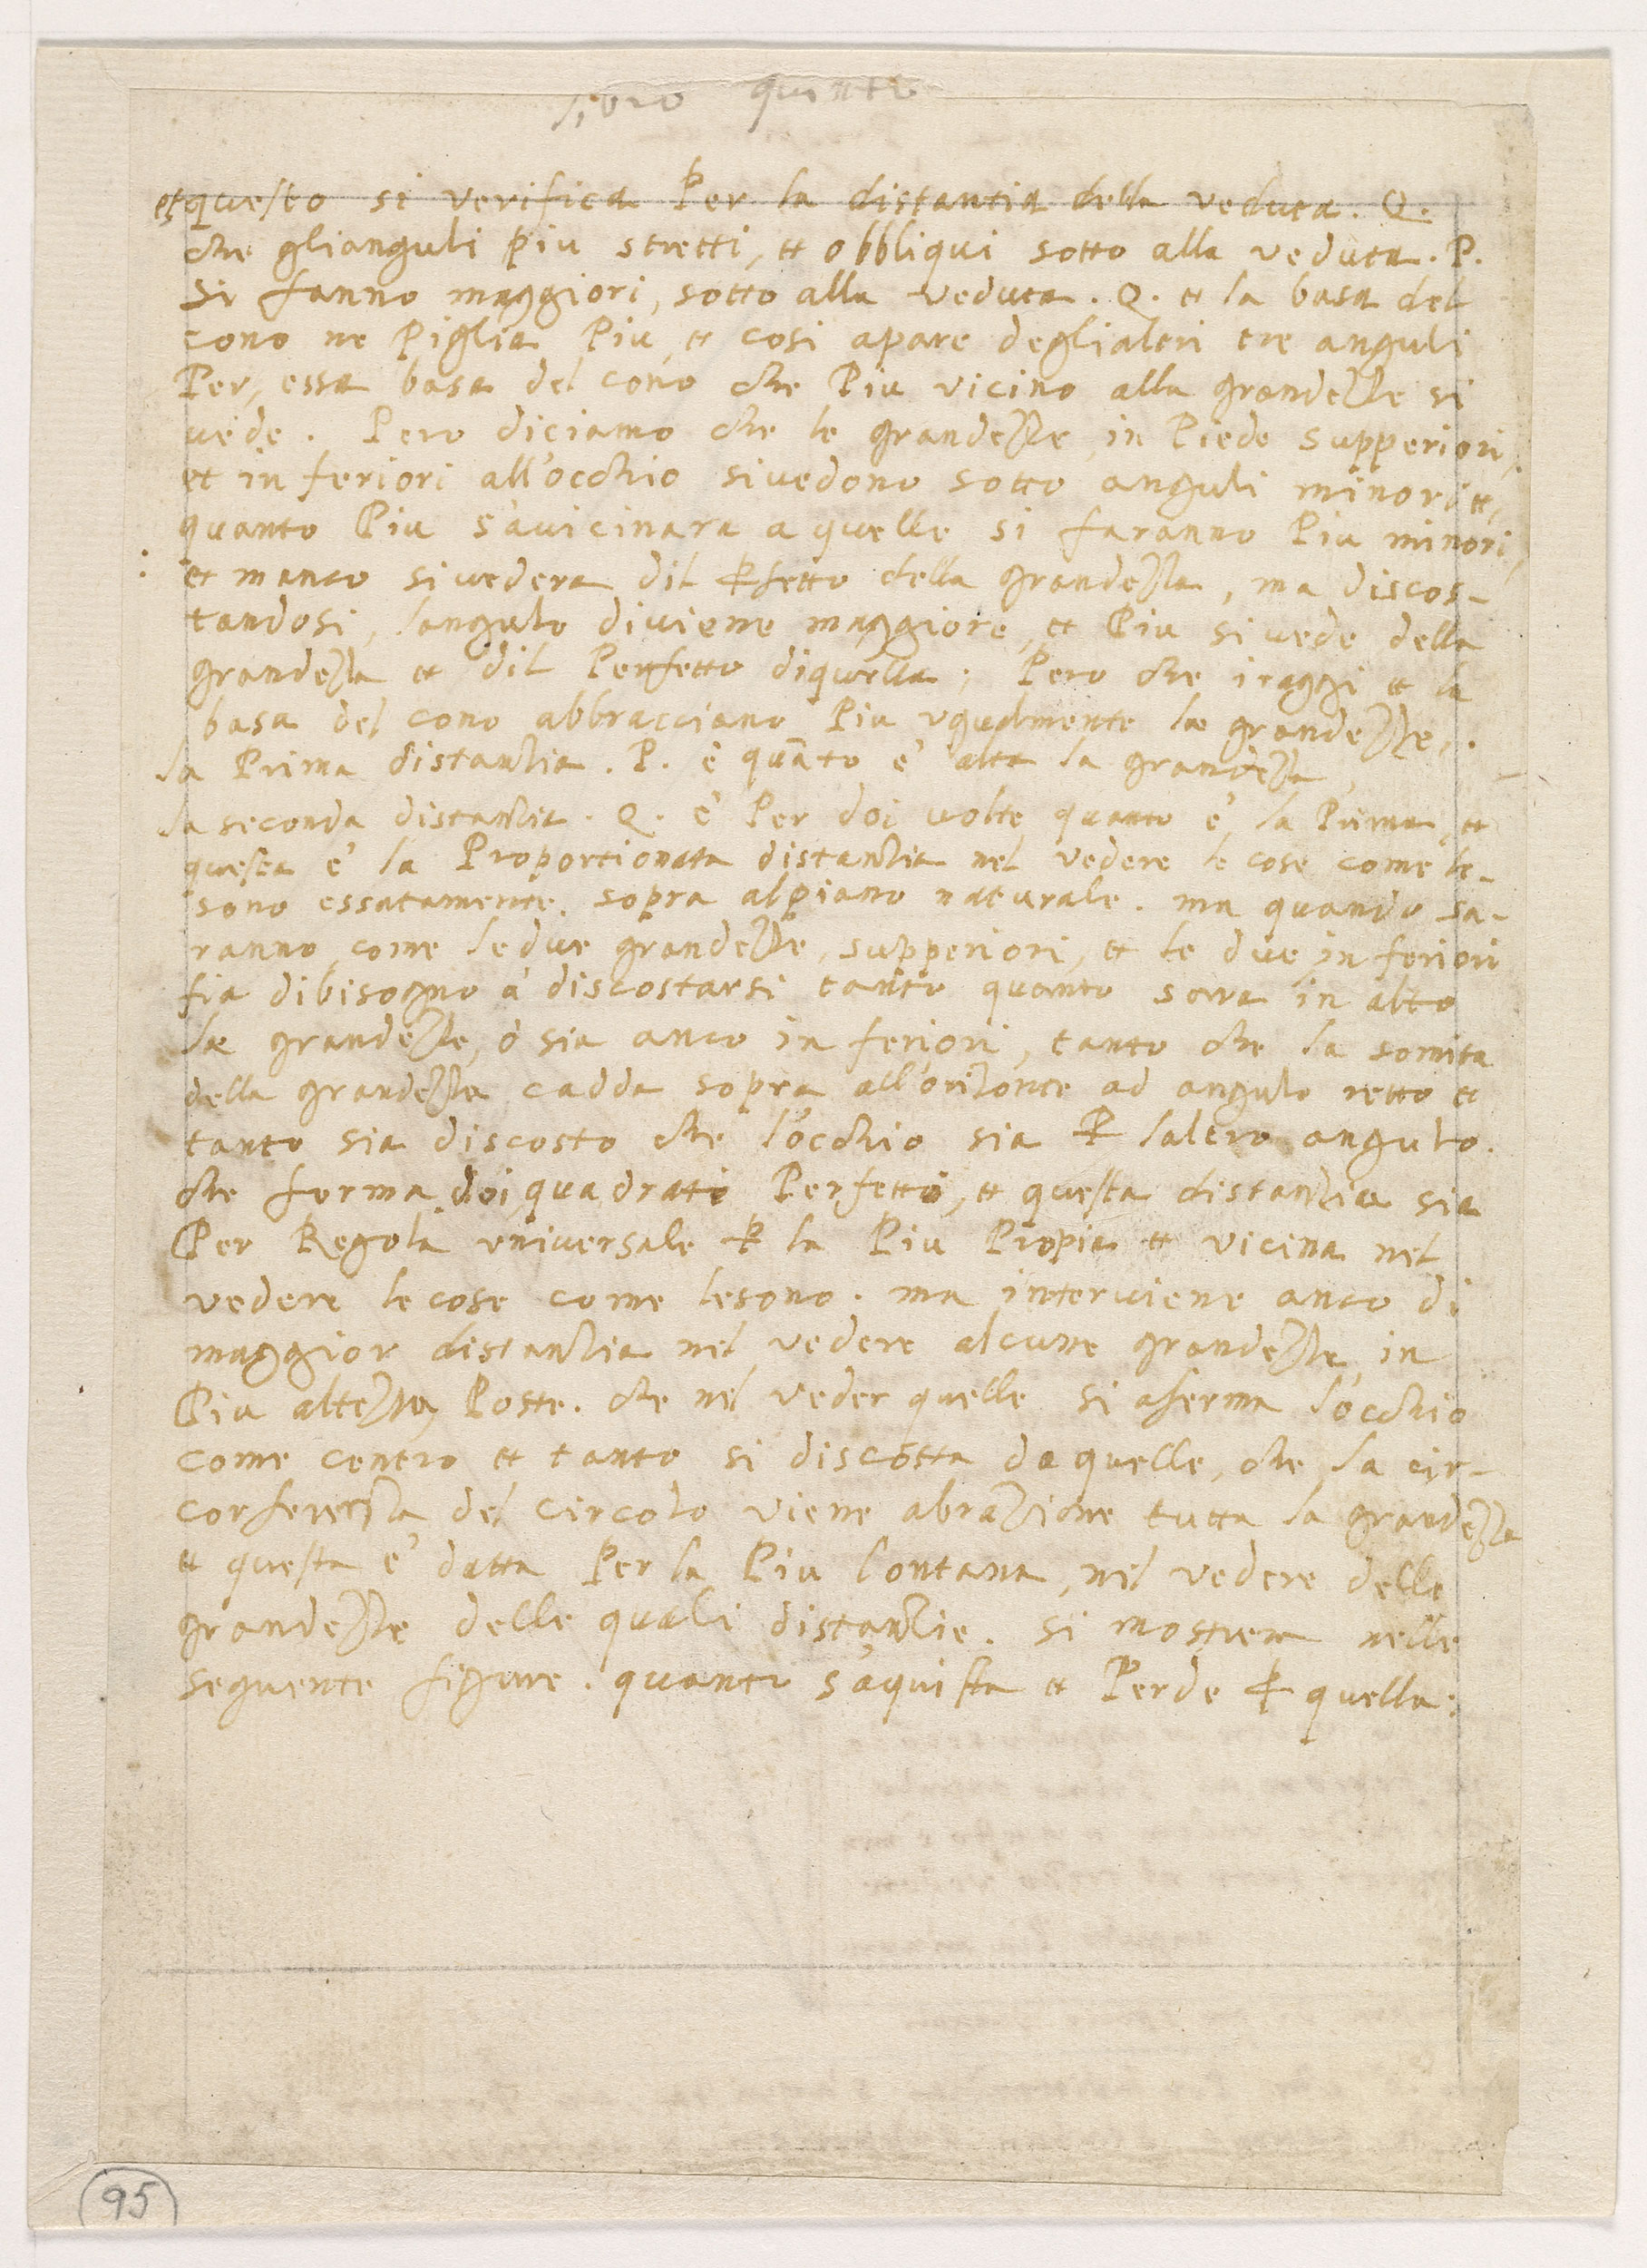 libro quinto
et questo si verifica Per la distantia della veduta. Q.
che glianguli piu stretti, et obbliqui sotto alla veduta. P.
si fanno maggiori, sotto alla veduta. Q. et la basa del
cono ne Piglia Piu, et cosi apare deglialtri tre anguli
Per, essa basa del cono che Piu vicino alla grandezze si
vede. Pero diciamo che le grandezze, in Piede supperiori,
et in feriori all'occhio sivedono sotto anguli minori et,
quanto Piu s'avicinara a quelle si faranno Piu minori,
et manco sivedera dil ꝑfetto della grandezza, ma discos-
tandosi, langulo diviene maggiore, et Piu si vede della
grandezza et dil Perfetto diquella; Pero che i raggi et la
basa del cono abbracciano Piu ugualmente le grandezze,.
la Prima distanzia. P. è quãto e' alta la grandezza,
la seconda distanzia. Q. e' Per doi volte quanto e', la Prima, et
questa e' la Proportionata distanzia nel vedere le cose come le-
sono essatamente. sopra alpiano naturale. ma quando sa-
ranno, come le due grandezze, supperiori, et le due in feriori
fia dibisogno a' discostarsi tanto quanto sara in alto
le grandezze, o' sia anco in feriori, tanto che la somita
della grandezza cadda sopra all'orizonte ad angulo retto et
tanto sia discosto che l'occhio sia ꝑ laltro angulo.
che forma doi quadrati Perfetti, et questa distanzia sia
Per Regola universale ꝑ la Piu Propia et vicina nel
vedere le cose come lesono. ma interviene anco di
maggior distanzia nel vedere alcune grandezze in
Piu altezza, Poste. che nel veder quelle si aferma l'occhio
come centro et tanto si discosta da quelle, che la cir-
conferenzia del circolo viene abrazione tutta la grandezza
et questa e' datta Per la Piu lontana, nel vedere delle
grandezze delle quali distanzie. si mostrera nelle
seguente figure. quanto s'aquista et Perde ꝑ quella:
95